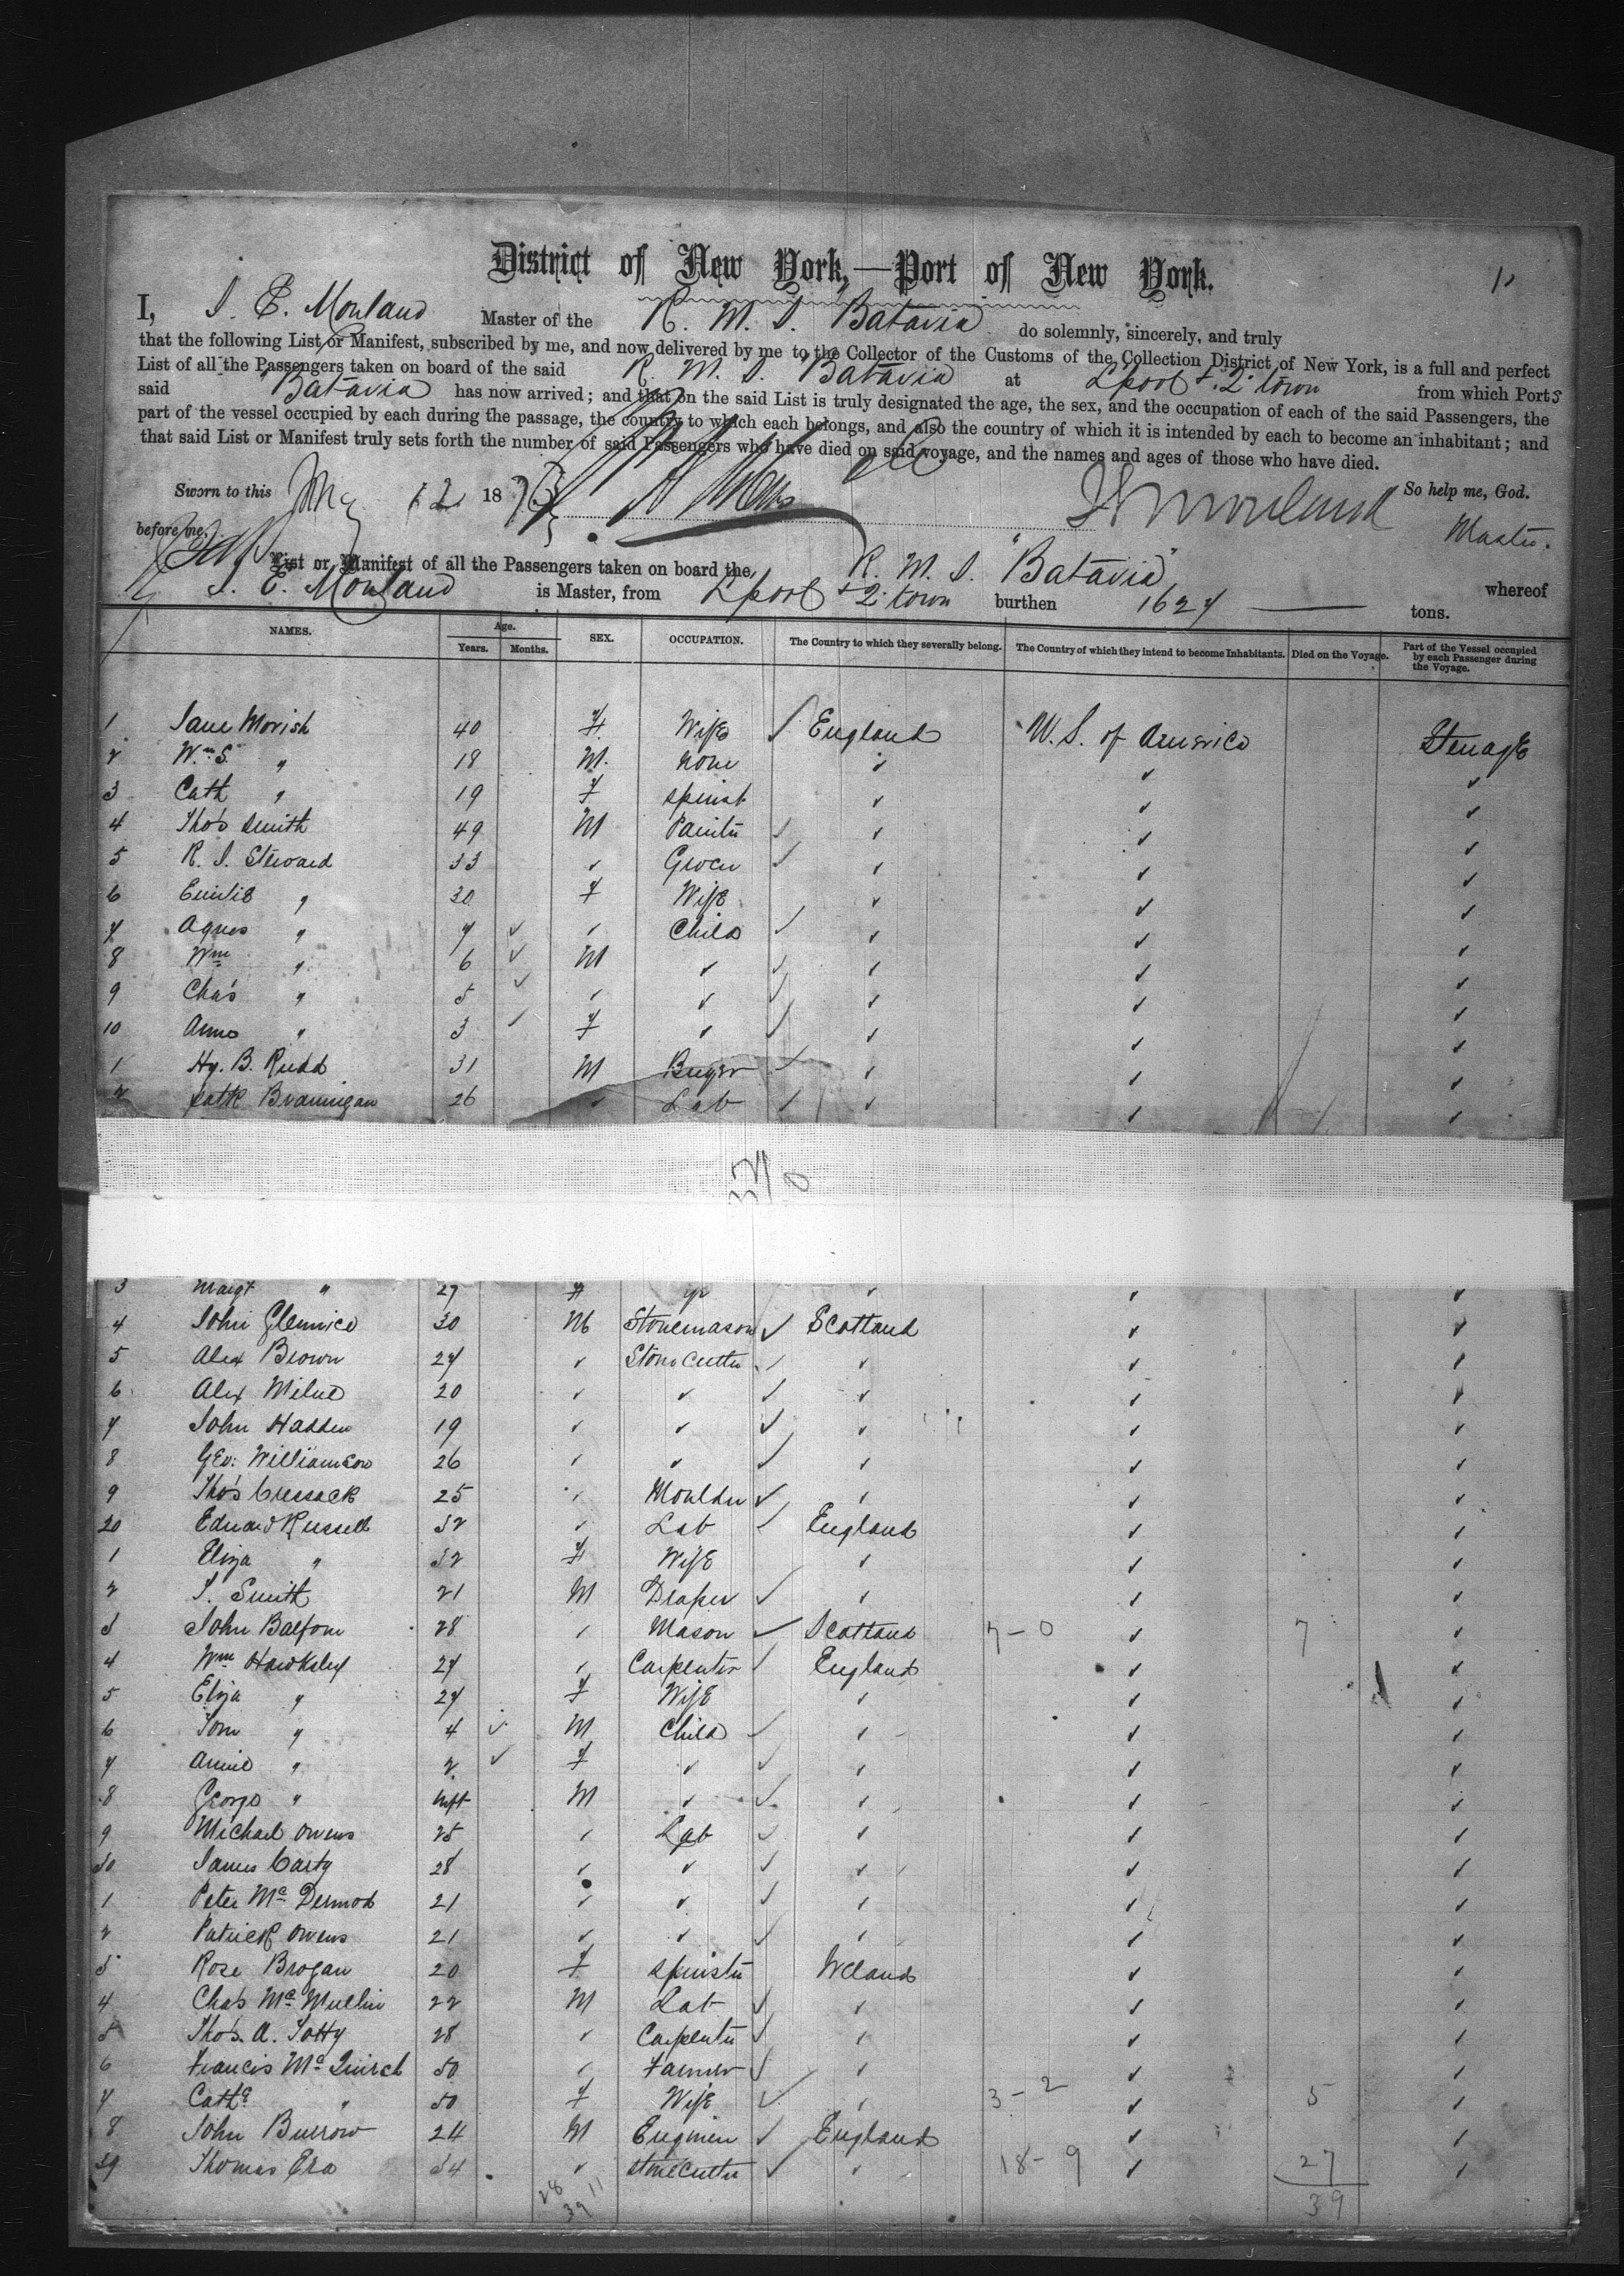 District of New York,—Port of New York.
I, J. E. Mouland Master of the R. M. S. Batavia do solemnly, sincerely, and truly
that the following List or Manifest, subscribed by me, and now delivered by me to the Collector of the Customs of the Collection District of New York, is a full and perfect
List of all the Passengers taken on board of the said R. M. S. "Batavia at Lpool + Q. town from which Ports
said "Batavia has now arrived; and that on the said List is truly designated the age, the sex, and the occupation of each of the said Passengers, the
part of the vessel occupied by each during the passage, the country to which each belongs, and also the country of which it is intended by each to become an inhabitant; and
that said List or Manifest truly sets forth the number of said Passengers who have died on said voyage, and the names and ages of those who have died.
Sworn to this 12 1873 So help me, God.
before me, J E Mouland Master.
List or Manifest of all the Passengers taken on board the R. M. S. "Batavia" whereof
J. E. Mouland is Master, from Lpool + Q. town burthen 1627 — tons.
NAMES. Age. Years. Months. SEX. OCCUPATION. The Country to which they severally belong. The Country of which they intend to become Inhabitants. Died on the Voyage. Part of the Vessel occupied by each Passenger during the Voyage.
1 Jane Morish 40 F. Wife ✓ England U. S. of America Steerage
2 Wm S. " 18 M. none ✓ ✓ ✓
3 Cath " 19 F spinst ✓ ✓ ✓
4 Thos Smith 49 M Painter ✓ ✓ ✓ ✓
5 R. J. Steward 33 ✓ Grocer ✓ ✓ ✓ ✓
6 Emilie " 30 F Wife ✓ ✓ ✓
7 Agnes " 7 ✓ ✓ Child ✓ ✓ ✓ ✓
8 Wm " 6 ✓ M ✓ ✓ ✓ ✓ ✓
9 Chas " 5 ✓ ✓ ✓ ✓ ✓ ✓ ✓
10 Anne " 3 ✓ F ✓ ✓ ✓ ✓ ✓
1 Hy. B. Rudd 31 M Buyer ✓ ✓ ✓ ✓
2 Patk Brannigan 26 ✓ Lab ✓ ✓ ✓ ✓
3 Margt " 27 F ✓ ✓ ✓
4 John Glennie 30 M Stonemason ✓ Scotland ✓ ✓
5 Alex Brown 27 ✓ Stone Cutter ✓ ✓ ✓ ✓
6 Alex Milne 20 ✓ ✓ ✓ ✓ ✓ ✓
7 John Hadden 19 ✓ ✓ ✓ ✓ ✓ ✓
8 Geo: Williamson 26 ✓ ✓ ✓ ✓ ✓ ✓
9 Thos Cussack 25 ✓ Moulder ✓ ✓ ✓ ✓
20 Edward Russell 32 ✓ Lab ✓ England ✓ ✓
1 Eliza " 32 F Wife ✓ ✓ ✓
2 J. Smith 21 M Draper ✓ ✓ ✓ ✓
3 John Balfour 28 ✓ Mason ✓ Scotland 7 - 0 ✓ 7 ✓
4 Wm Hawksley 27 ✓ Carpenter ✓ England ✓ ✓
5 Eliza " 27 F Wife ✓ ✓ ✓
6 Tom " 4 ✓ M Child ✓ ✓ ✓ ✓
7 Annie " 2 ✓ F ✓ ✓ ✓ ✓ ✓
8 George " Inft M ✓ ✓ ✓ ✓ ✓
9 Michael Owens 25 ✓ Lab ✓ ✓ ✓ ✓
30 James Carty 28 ✓ ✓ ✓ ✓ ✓ ✓
1 Peter McDermod 21 ✓ ✓ ✓ ✓ ✓ ✓
2 Patrick Owens 21 ✓ ✓ ✓ ✓ ✓ ✓
3 Rose Brogan 20 F spinster Ireland ✓ ✓
4 Chas McMullin 22 M Lab ✓ ✓ ✓ ✓
5 Thos. A. Totty 28 ✓ Carpenter ✓ ✓ ✓ ✓
6 Francis McQuirch 50 ✓ Farmer ✓ ✓ ✓ ✓
7 Cathe " 50 F Wife ✓ ✓ 3 - 2 ✓ 5 ✓
8 John Burrow 24 M Engineer ✓ England ✓ ✓
39 Thomas Era 34 ✓ stonecutter ✓ ✓ 18 - 9 ✓ 27 ✓
28 11 39
39